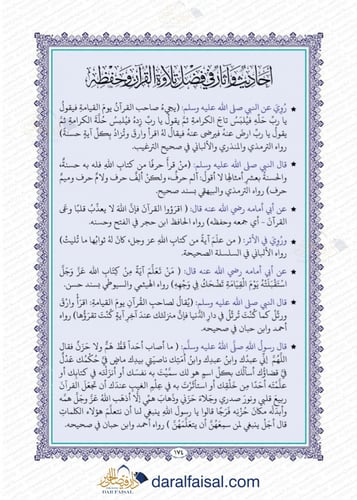 أحاديث وآثار في فضل تلاوة القرآن وحفظه
★ رُويَ عن النبي صلى الله عليه وسلم: (يجيءُ صاحب القرآنُ يومَ القيامةِ فيقولُ
يقول يا ربِّ حَلِّهِ فيُلبَسُ تاجَ الكرامةِ ثمَّ يقولُ يا ربِّ زِدهُ فيُلبَسُ حُلَّةَ الكرامةِ ثمَّ
يقول يا ربِّ ارضَ عنهُ فيرضى عنهُ فيقالُ لهُ اقرأ وارقَ وتُزادُ بِكلِّ آيةٍ حسنةً)
رواه الترمذي والمنذري والألباني في صحيح الترغيب.
★ قال النبي صلى الله عليه وسلم: (منْ قرأَ حرفًا من كتابِ اللهِ فله به حسنةٌ،
والحسنةُ بعشرِ أمثالِها لا أقول: ألم حرفٌ، ولكنْ ألِفٌ حرفٌ ولامٌ حرفٌ وميمٌ
حرف) رواه الترمذي والبيهقي بسند صحيح.
★ عن أبي أمامة رضي الله عنه قال: ( اقرَؤوا القرآنَ فإنَّ اللهَ لا يعذِّبُ قلبًا وعَى
القرآنَ - أي جمعه وحفظه) رواه الحافظ ابن حجر في الفتح وحسنه.
★ ورُويَ في الأثر: ( من علَّمَ آيةً من كتابِ اللهِ عز وجل، كان لهُ ثوابُها ما تُليتْ)
رواه الألباني في السلسلة الصحيحة.
★ عن أبي أمامه رضي الله عنه قال: ( مَنْ تَعَلَّمَ آيَةً مِنْ كِتَابِ الله عَزَّ وَجَلَّ
اسْتَقْبَلَتْهُ يَوْمَ الْقِيَامَةِ تَضْحَكُ فِي وَجْهِهِ) رواه الهيثمي والسيوطي بسند حسن.
★ قال النبي صلى الله عليه وسلم: (يُقَالُ لصاحبِ القرآنِ يومَ القيامةِ: اقرَأْ وارْقَ
ورتِّل كما كُنْتَ تُرتِّل في دارِ الدُّنيا فإنَّ منزلتَك عندَ آخِرِ آيةٍ كُنْتَ تقرَؤُها) رواه
أحمد وابن حبان في صحيحه.
★ قال رسول اللهِ صلَّى اللهُ عليه وسلَّم: ( ما أصاب أحدًا قطُّ همٌّ ولا حَزَنٌ فقال
اللَّهُمَّ إنِّي عبدُك وابنُ عبدِك وابنُ أمَتِك ناصيتي بيدِك ماضٍ فيَّ حُكْمُك عَدْلٌ
فيَّ قضاؤُك أسألُك بكلِّ اسمٍ هو لك سمَّيْتَ به نفسَك أو أنزَلْتَه في كتابِك أو
علَّمْتَه أحدًا مِن خَلْقِك أو استأثَرْتَ به في عِلمِ الغيبِ عندَك أن تجعَلَ القرآنَ
ربيعَ قلبي ونورَ صدري وجَلاءَ حُزني وذَهابَ همِّي إلَّا أذهَب اللهُ عزَّ وجلَّ همَّه
وأبدَله مكانَ حُزْنِه فَرَجًا قالوا يا رسولَ اللهِ ينبغي لنا أن نتعلَّمَ هؤلاء الكلماتِ
قال أجَلْ ينبغي لمن سمِعهُنَّ أن يتعلَّمَهُنَّ ) رواه أحمد وابن حبان في صحيحه.
١٧٤
دار فيصل
DAR FAISAL
daralfaisal.com